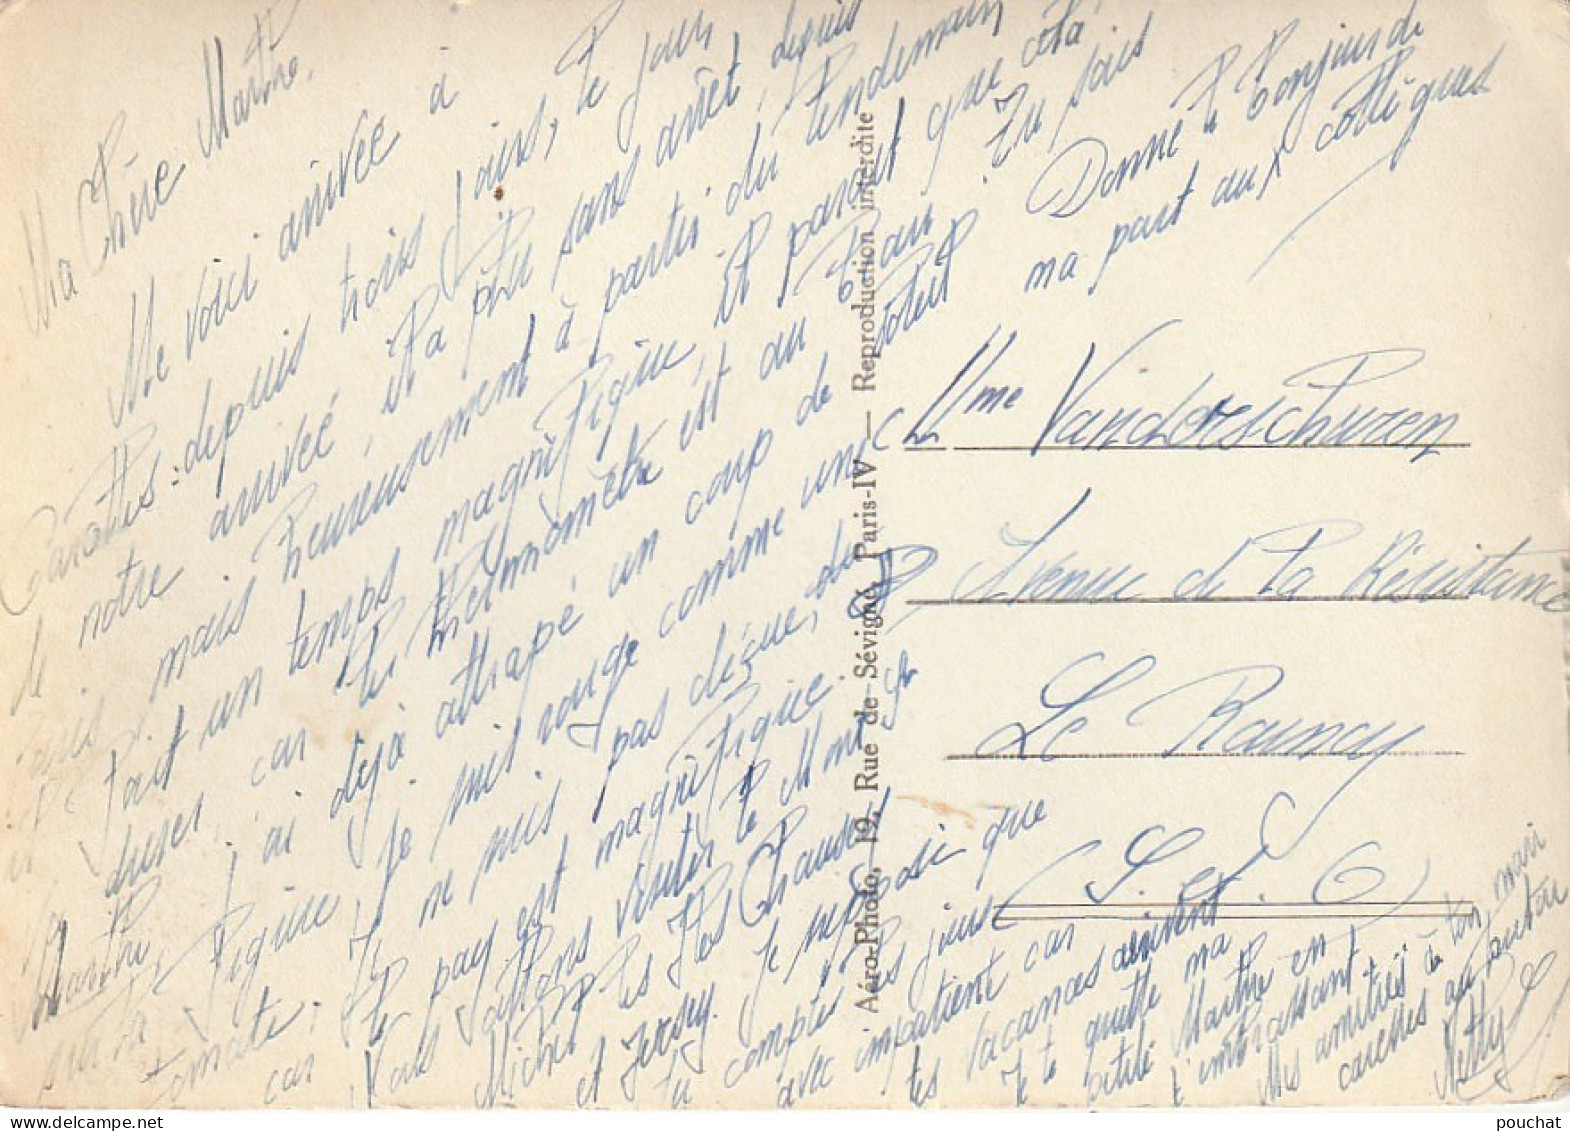 Ma Chère Marthe,
Me voici arrivée à
Carolles depuis trois jours, le jour
de notre arrivée il a plu sans arrêt, depuis
mais heureusement à partir du lendemain
il fait un temps magnifique, il parait que cela
durer, car le thermomètre est au beau. Tu sais
Marthe, j'ai déjà attrapé un coup de soleil
sur la figure, je suis rouge comme une
tomate. Je ne suis pas déçue, du
car le pays est magnifique.
Nous allons visiter le Mont St
Michel, les Iles Chausey
et Jersey. Je suppose que
tu comptes les jours
avec impatience car
tes vacances arrivent
Je te quitte ma
petite Marthe en
t'embrassant
Mes amitiés à ton mari
caresses au toutou
Netty
Donne le bonjour de
ma part aux collègues
Aéro-Photo, 19, Rue de Sévigné, Paris-IV — Reproduction interdite
Mme Vanderschuren
Avenue de la Résistance
Le Raincy
(S. et O)
pouchat